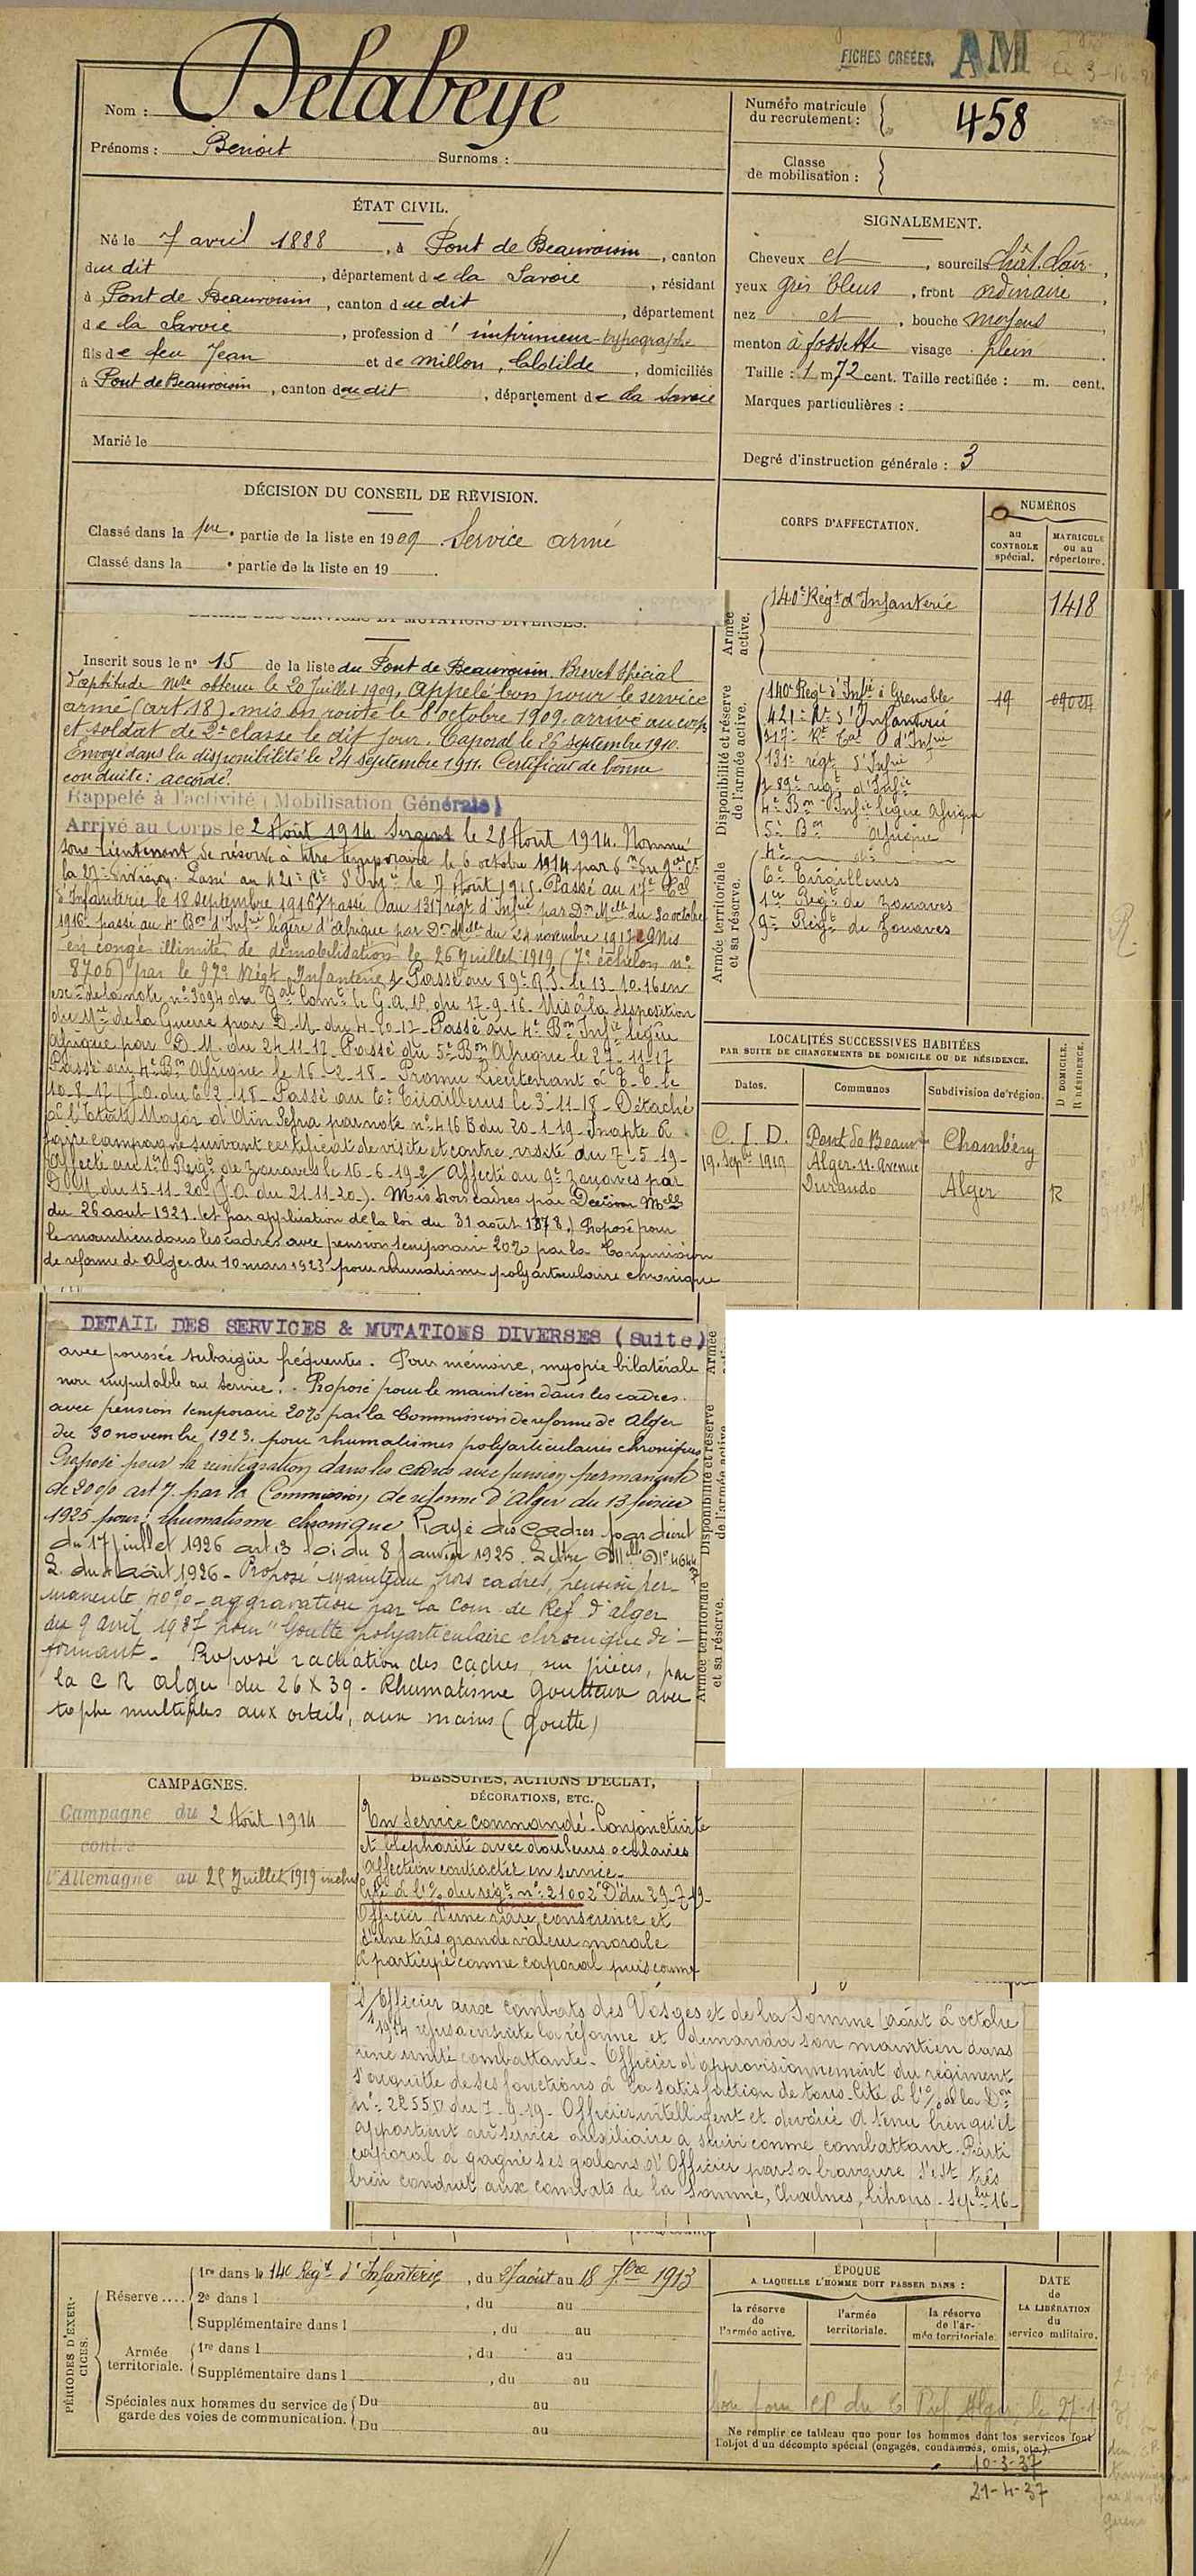 FICHES CRÉÉES. AM
Nom : Delabeye
Prénoms : Benoit Surnoms :
Numéro matricule
du recrutement : 458
Classe
de mobilisation :
ÉTAT CIVIL.
Né le 7 avril 1888, à Pont de Beauvoisin, canton
du dit, département de la Savoie, résidant
à Pont de Beauvoisin, canton du dit, département
de la Savoie, profession d'imprimeur-typographe
fils de feu Jean et de Millon, Clotilde, domiciliés
à Pont de Beauvoisin, canton du dit, département de la Savoie
Marié le
SIGNALEMENT.
Cheveux et, sourcils chât. clair,
yeux gris bleus, front ordinaire,
nez et, bouche moyens
menton à fossette visage plein.
Taille : 1 m 72 cent. Taille rectifiée : m. cent.
Marques particulières :
Degré d'instruction générale : 3
DÉCISION DU CONSEIL DE RÉVISION.
Classé dans la 1ère partie de la liste en 1909. Service armé
Classé dans la e partie de la liste en 19 .
CORPS D'AFFECTATION.
NUMÉROS
au
CONTROLE
spécial.
MATRICULE
ou au
répertoire.
Armée
active.
140e Régt d'Infanterie 1418
Disponibilité et réserve
de l'armée active.
140e Régt d'Infie à Grenoble 19
421e Rt d'Infanterie
17e Rt Cal d'Infie
131e régt d'Infie
89e régt d'Infie
4e Bon Infie légère Afrique
5e Bon Afrique
Armée territoriale
et sa réserve.
4e
6e Tirailleurs
1er Régt de Zouaves
9e Régt de Zouaves
DÉTAIL DES SERVICES ET MUTATIONS DIVERSES.
Inscrit sous le no 15 de la liste du Pont de Beauvoisin. Brevet spécial
d'aptitude mre obtenu le 20 Juillet 1909, appelé bon pour le service
armé (art 18). mis en route le 8 octobre 1909. arrivé au corps
et soldat de 2e classe le dit jour. Caporal le 26 septembre 1910.
Envoyé dans la disponibilité le 24 septembre 1911. Certificat de bonne
conduite : accordé.
Rappelé à l'activité (Mobilisation Générale)
Arrivé au Corps le 2 Août 1914. Sergent le 28 Août 1914. Nommé
sous-lieutenant de réserve à titre temporaire le 6 octobre 1914 par On du Gal Ct
la 27e Division. Passé au 421e Rt d'Infie le 7 Août 1915. Passé au 17e Cal
d'Infanterie le 18 septembre 1916 passé au 131e régt d'Infie par Don Mlle du 20 octobre
1916. passé au 4e Bon d'Infie légère d'Afrique par Don Mlle du 24 novembre 1917. Mis
en congé illimité de démobilisation le 26 Juillet 1919 (7e échelon no
8706) par le 97e Régt Infanterie. Passé au 89e R.I. le 13-10-16 en
exon de la note no 3094 du Gal Comt le G.A.P. du 17-9-16. Mis à la disposition
du Mre de la Guerre par D.M. du 4-10-17. Passé au 4e Bon Infie légère
Afrique par D.M. du 24-11-17. Passé au 5e Bon Afrique le 27-11-17
Passé au 4e Bon Afrique le 16-2-18. Promu Lieutenant à T.T. le
10-8-17 (J.O. du 6-2-18. Passé au 6e Tirailleurs le 3-11-18. Détaché
à l'Etat Major d'Aïn Sefra par note no 416 B du 20-1-19. Inapte à
faire campagne suivant certificat de visite et contre visite du 7-5-19.
Affecté au 1er Régt de Zouaves le 16-6-19. Affecté au 9e Zouaves par
D.M. du 15-11-20 (J.O. du 21-11-20). Mis hors cadres par Décision Mlle
du 26 aout 1921. (et par application de la loi du 31 août 1878.) Proposé pour
le maintien dans les cadres avec pension temporaire 20% par la Commission
de reforme de Alger du 10 mars 1923 pour rhumatisme polyarticulaire chronique
LOCALITÉS SUCCESSIVES HABITÉES
PAR SUITE DE CHANGEMENTS DE DOMICILE OU DE RÉSIDENCE.
Dates. Communes Subdivision de région. D DOMICILE. R RÉSIDENCE.
C. I. D. Pont de Beauvin Chambéry
19. Sepbre 1919 Alger-11. Avenue
Durando Alger R
DETAIL DES SERVICES & MUTATIONS DIVERSES (suite)
avec poussée subaigüe fréquentes. Pour mémoire, myopie bilatérale
non imputable au service. Proposé pour le maintien dans les cadres.
avec pension temporaire 20% par la Commission de reforme de Alger
du 30 novembre 1923. pour rhumatismes polyarticulaires chroniques
Proposé pour la réintégration dans les cadres avec pension permanente
de 20% art 7. par la Commission de réforme d'Alger du 13 février
1925 pour : rhumatisme chronique Rayé des cadres par décret
du 17 juillet 1926 art 13 loi du 8 Janvier 1925. Lettre Mlle No 4644
2. du 4 août 1926 - Proposé maintien hors cadres, pension per-
manente, 40% - aggravation par la Com de Réf. d'alger
du 9 avril 1937 pour "Goutte polyarticulaire chronique dé-
formant - Proposé radiation des cadres, sur pièces, par
la C R Alger du 26 X 39 - Rhumatisme goutteux avec
tophe multiples aux orteils, aux mains (goutte)
Armée territoriale
et sa réserve.
Disponibilité et réserve
de l'armée active
Armée
CAMPAGNES.
Campagne du 2 Août 1914
contre
l'Allemagne au 25 Juillet 1919 inclus
BLESSURES, ACTIONS D'ÉCLAT,
DÉCORATIONS, ETC.
En service commandé. Conjonctivite
et blépharite avec douleurs oculaires
affection contractée en service.
Cité à l'o/ du régt no 21002 "D" du 29-7-19-
Officier d'une rare conscience et
d'une très grande valeur morale
a participé comme caporal puis comme
s/officier aux combats des Vosges et de la Somme (août à octobre
1914 refusa ensuite la réforme et demanda son maintien dans
une unité combattante. Officier d'approvisionnement du régiment
s'acquitte de ses fonctions à la satisfaction de tous. Cité à l'o/ de la Don
no 2255 D du 7-9-19. Officier intelligent et dévoué a tenu bien qu'il
appartient au service auxiliaire à servir comme combattant. Parti
caporal a gagné ses galons d'Officier par sa bravoure s'est très
bien conduit aux combats de la Somme, Chaulnes, Lihons - Sepbre 16-
PÉRIODES D'EXER-
CICES.
Réserve .... 1re dans le 140 Régt d'Infanterie, du 27 août au 18 7bre 1913
2e dans l , du au
Supplémentaire dans l , du au
Armée
territoriale. 1re dans l , du au
Supplémentaire dans l , du au
Spéciales aux hommes du service de
garde des voies de communication. Du au
Du au
ÉPOQUE
A LAQUELLE L'HOMME DOIT PASSER DANS :
la réserve
de
l'armée active.
l'armée
territoriale.
la réserve
de l'ar-
mée territoriale.
DATE
de
LA LIBÉRATION
du
service militaire.
Ne remplir ce tableau que pour les hommes dont les services font
l'objet d'un décompte spécial (engagés, condamnés, omis, etc.).
10-3-37
21-4-37